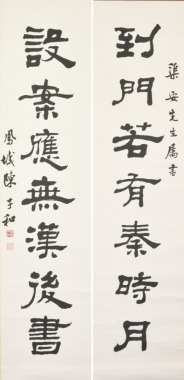 到門若有秦時月
渠安先生属書
設案應無漢後書
鳳城陳子和